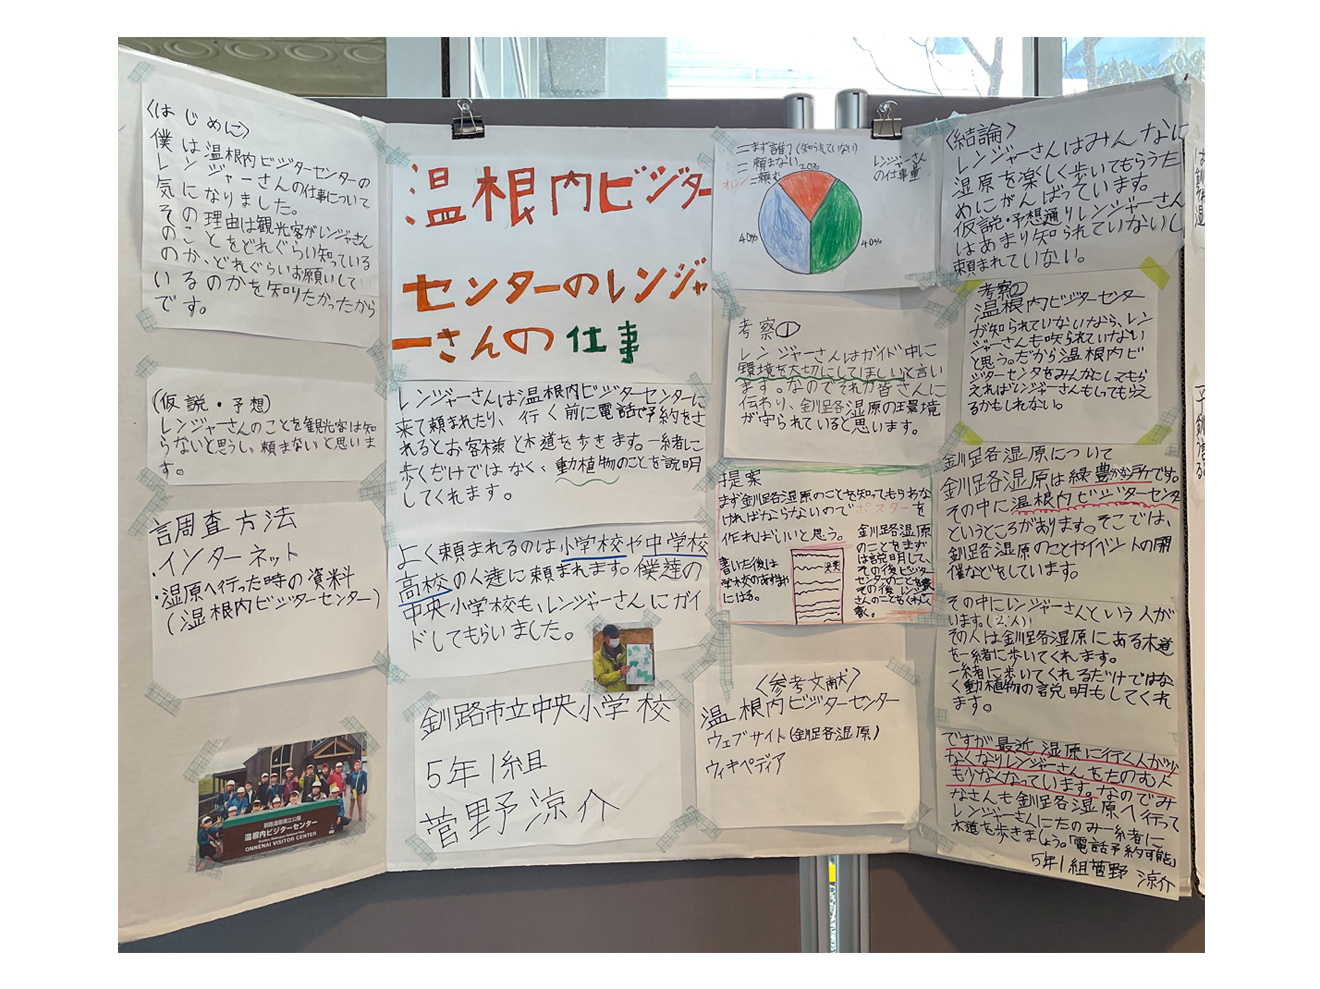 〈はじめに〉
僕は温根内ビジターセンターの
レンジャーさんの仕事について
気になりました。
その理由は観光客がレンジャさん
のことをどれぐらい知っている
のか、どれぐらいお願いして
いるのかを知りたかったから
です。
(仮説・予想)
レンジャーさんのことを観光客は知
らないと思うし、頼まないと思いま
す。
調査方法
・インターネット
・湿原へ行った時の資料
(温根内ビジターセンター)
釧路湿原国立公園
温根内ビジターセンター
ONNENAI VISITOR CENTER
温根内ビジター
センターのレンジャ
ーさんの仕事
レンジャーさんは温根内ビジターセンターに
来て頼まれたり、行く前に電話で予約をさ
れるとお客様と木道を歩きます。一緒に
歩くだけではなく、動植物のことを説明
してくれます。
よく頼まれるのは小学校や中学校
高校の人達に頼まれます。僕達の
中央小学校も、レンジャーさんにガイ
ドしてもらいました。
釧路市立中央小学校
5年1組
菅野涼介
=まず誰?(知られていない)
=頼まない
オレンジ=頼む
レンジャーさん
の仕事量
20%
40%
40%
考察①
レンジャーさんはガイド中に
環境を大切にしてほしいと言い
ます。なのでそれが皆さんに
伝わり、釧路湿原の環境
が守られていると思います。
提案
まず釧路湿原のことを知ってもりあな
ければならないのでポスターを
作ればいいと思う。
書いた後は
学校のあちこちや
にはる。
釧路湿原
のことをまず
は説明して、
その後ビジター
センターのことを書
その後レンジャー
さんのことをくわしく
書く。
〈参考文献〉
温根内ビジターセンター
ウェブサイト(釧路湿原)
ウィキペディア
〈結論〉
レンジャーさんはみんなに
湿原を楽しく歩いてもらうた
めにがんばっています。
仮説・予想通りレンジャーさん
はあまり知られていないし
頼まれていない。
考察②
温根内ビジターセンター
が知られていないなら、レン
ジャーさんも知られていない
と思う。だから温根内ビ
ジターセンタをみんなにしてもら
えればレンジャーさんもしってもらえ
るかもしれない。
釧路湿原について
釧路湿原は緑豊かな所です。
その中に温根内ビジターセンター
というところがあります。そこでは、
釧路湿原のことやイベントの開
催などをしています。
その中にレンジャーさんという人が
います。(2人)
その人は釧路湿原にある木道
を一緒に歩いてくれます。
一緒に歩いてくれるだけではな
く動植物の説明もしてくれ
ます。
ですが最近湿原に行く人が少
なくなりレンジャーさんをたのむ人
も少なくなっています。なのでみ
なさんも釧路湿原へ行って
レンジャーさんにたのみ一緒に
木道を歩きましょう。「電話予約可能」
5年1組菅野涼介